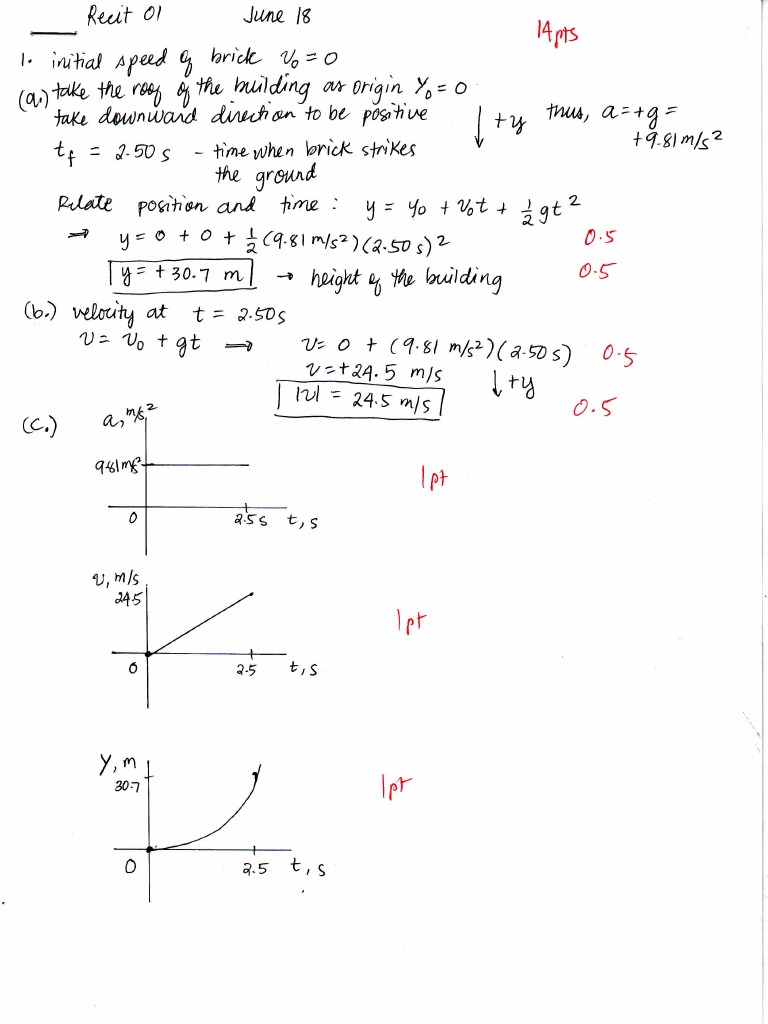 Recit 01 June 18
14pts
1. initial speed of brick v₀ = 0
(a.) take the roof of the building as origin Y₀ = 0
take downward direction to be positive ↓ +y thus, a = +g =
+9.81 m/s²
t_f = 2.50 s - time when brick strikes
the ground
Relate position and time : y = y₀ + v₀t + ½ gt²
⇒ y = 0 + 0 + ½ (9.81 m/s²)(2.50 s)² 0.5
y = +30.7 m → height of the building 0.5
(b.) velocity at t = 2.50s
v = v₀ + gt ⇒ v = 0 + (9.81 m/s²)(2.50 s) 0.5
v = +24.5 m/s ↓ +y
|v| = 24.5 m/s 0.5
(c.) a, m/s²
9.81 m/s²
1pt
0 2.5s t, s
v, m/s
24.5
1pt
0 2.5 t, s
Y, m
30.7
1pt
0 2.5 t, s